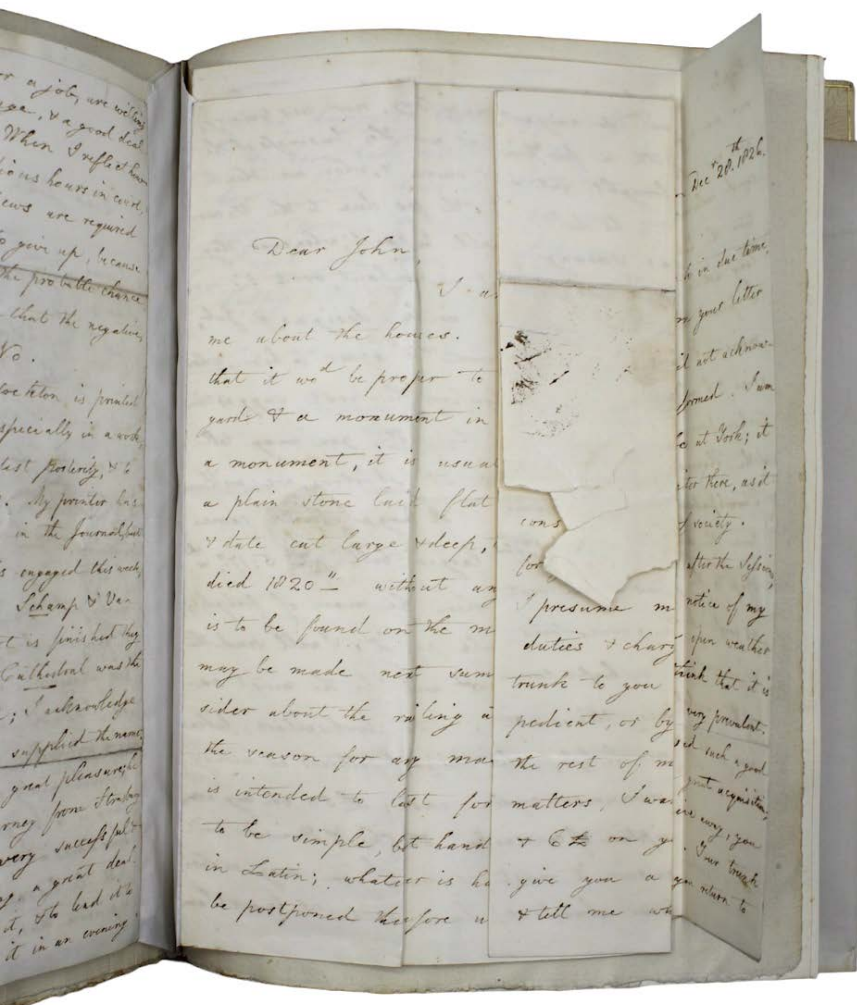 a job, are willing
& a good deal
When I reflect how
hours in
are required
to give up, because
the probable chance
that the negative,
No.
is printed
specially in a work,
last posterity, & to
My printer has
in the Journal, but
is engaged this week,
Schamp & Va-
t is finished they
Cathedral was the
; I acknowledge
supplied the names,
great pleasure; he
rney from
very successful
a great deal
it, & to lend it
it in an evening.
Dear John,
I a
me about the houses.
that it wod be proper to
yard & a monument in
a monument, it is usua
a plain stone laid flat
& date cut large & deep,
died 1820" without an
is to be found on the m
may be made next sum
sider about the railing a
the season for any ma
is intended to last for
to be simple, but hand
in Latin; whatever is ha
be postponed therefore u
cons
for
I presume m
duties & charg
trunk to you
pedient, or by
the rest of m
matters, I was
& 6 on y
give you a
& tell me wh
Decr 28th. 1826.
h in due time,
your letter
not acknow-
formed. I am
be at York; it
there, as it
of society.
after the Session,
notice of my
open weather
think that it is
very prevalent.
such a good
great acquisition,
away; you
Your trunk
you return to